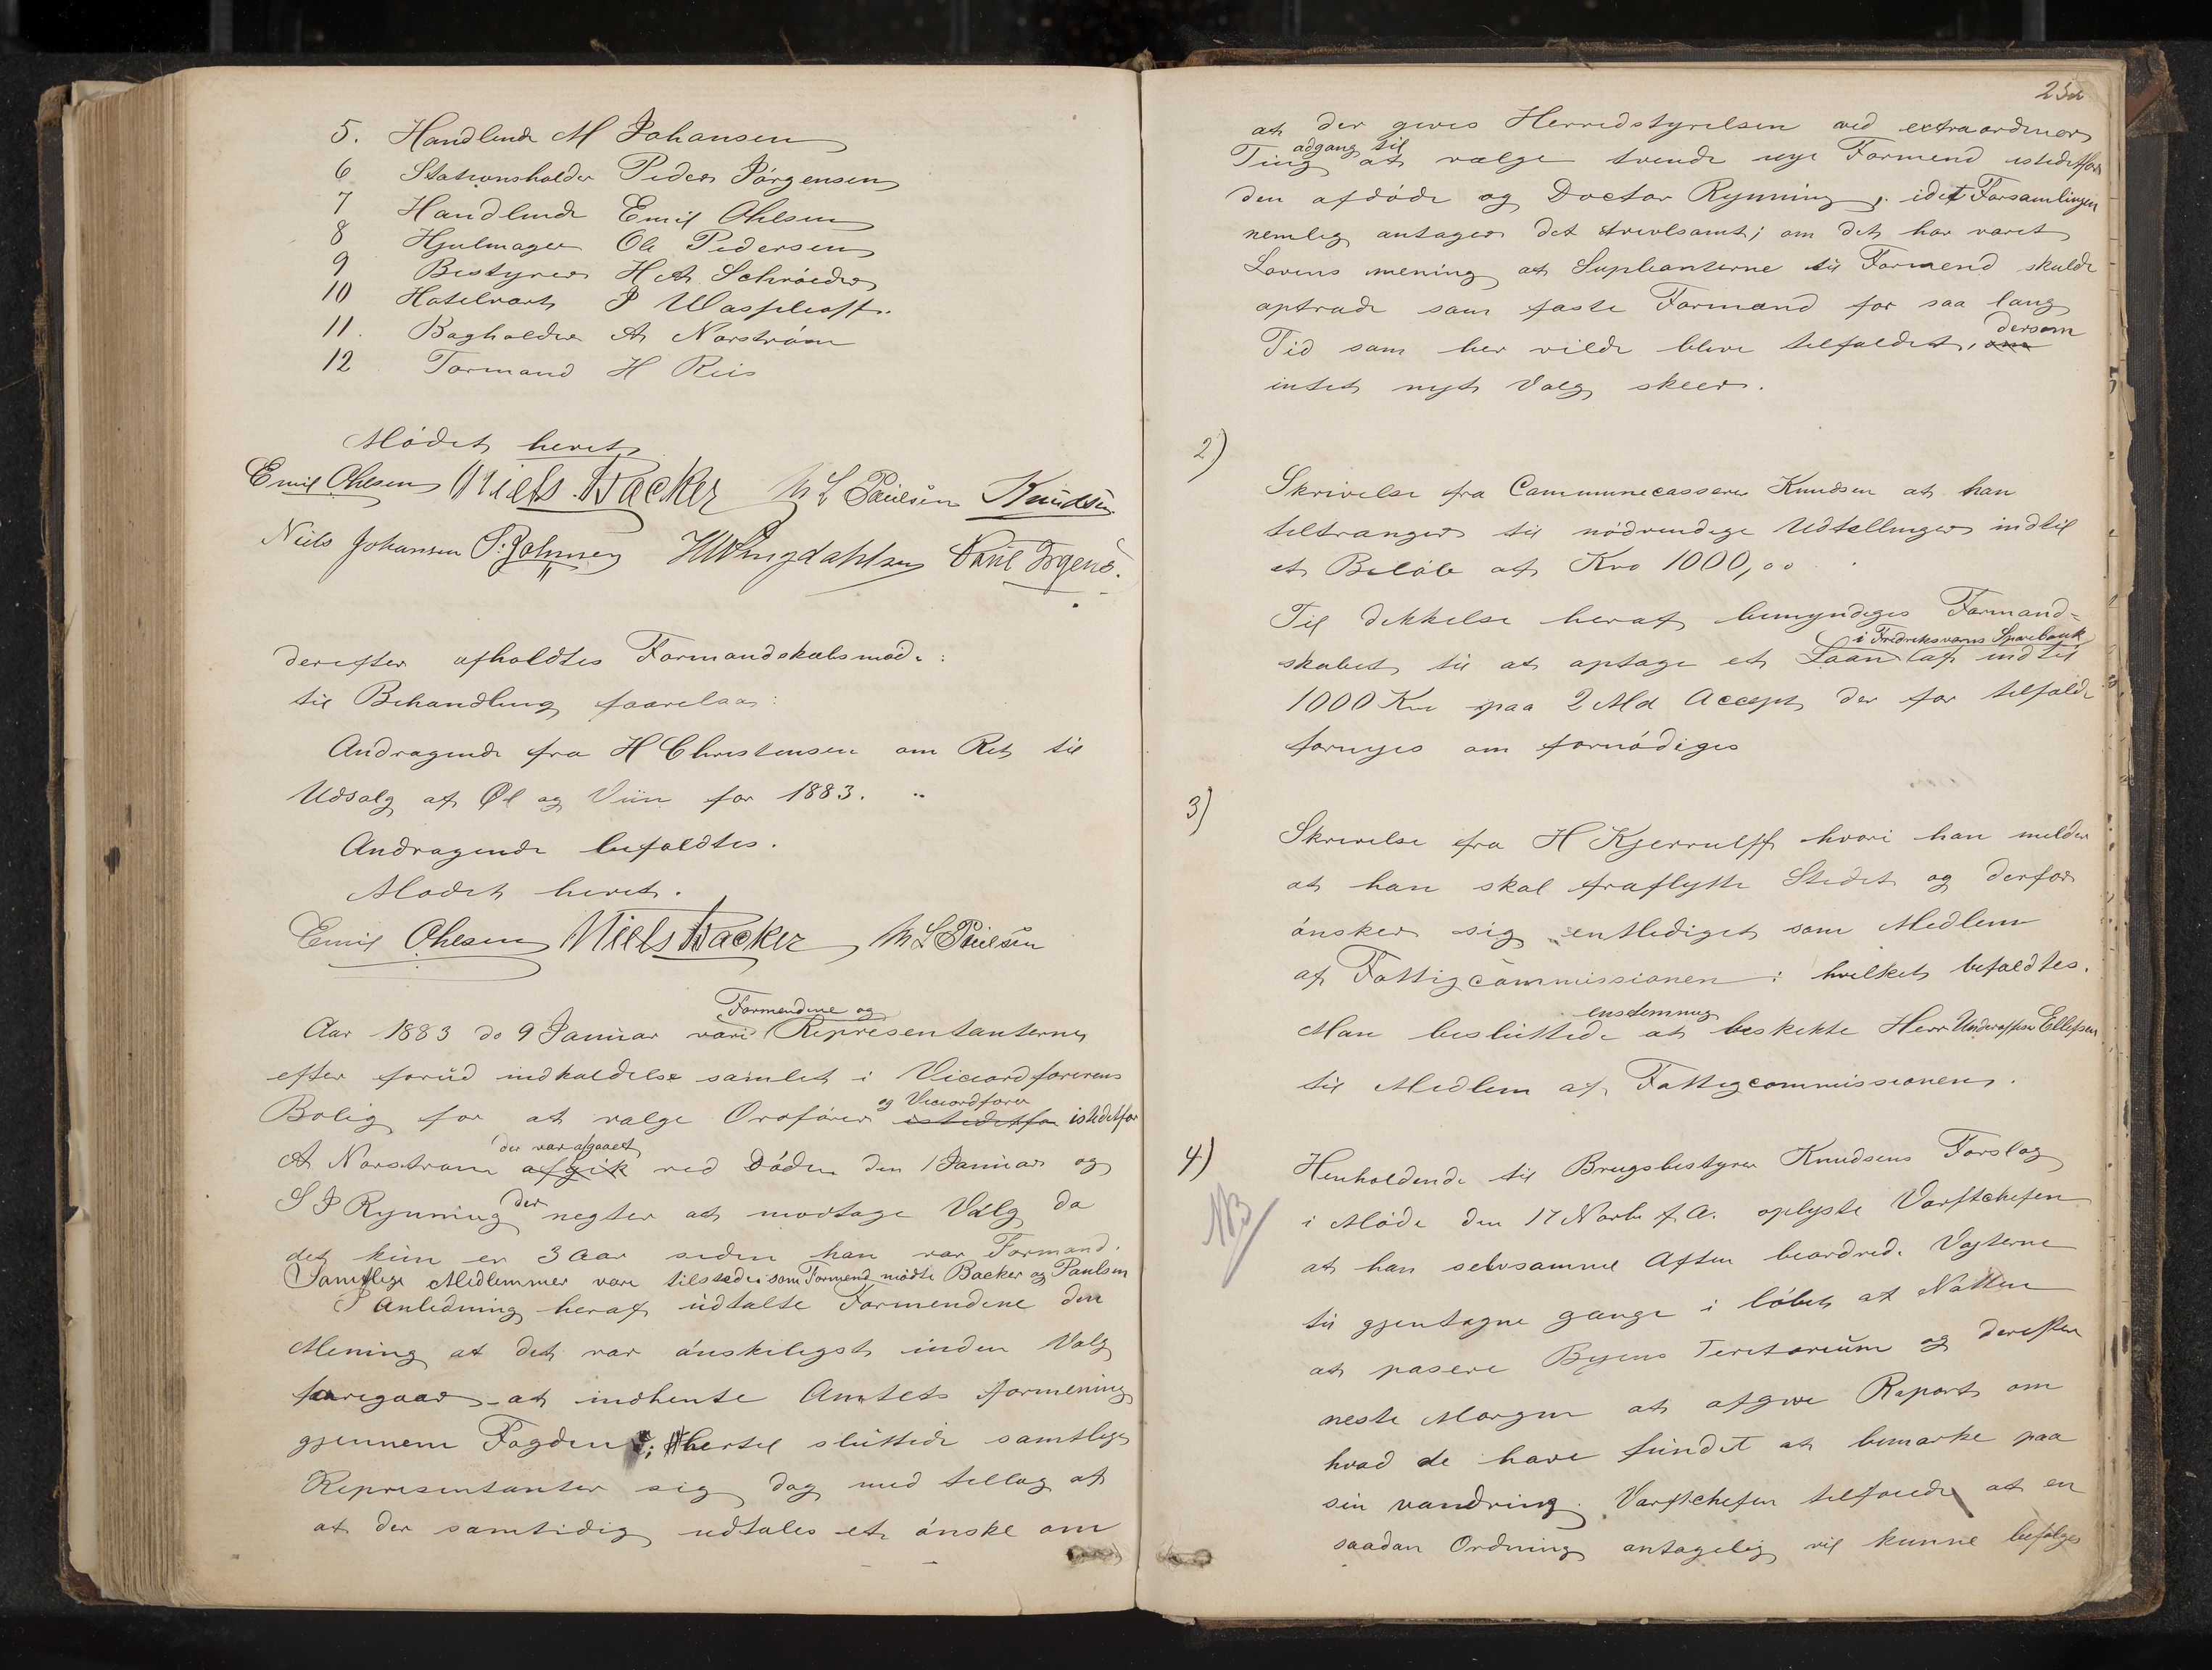 5. Handlende M Johansen
6 Stationsholder Peder Jørgensen
7 Handlende Emil Ohlsen
8 Hjulmager Ole Pedersen
9 Bestyrer H A Schrøder
10 Hotelvært P
11. Bogholder A Norstrøm
12 Formand H Reis
Mødet hevet
Emil Ohlsen Niels Backer M L Paulsen Knudsen
Niels Johansen
derefter afholdtes Formandskabsmøde:
til Behandling foorelaa:
Andragende fra H Christensen om Ret til
Udsalg af Øl og Viin for 1883.
Andragende befaldtes.
Mødet hevet.
Emil Ohlsen Niels Backer M L Paulsen
Formendene og
Aar 1883 do 9 Januar vare Representanterne
efter forud indkaldelse samlet i Viceordførerens
og Viceordfører
Bolig for at valge Ordfører istedetfor istedetfor
der var afgaaet
A Norstrøm afgik ved Døden den 1 Januar og
S P Rynning der negter at modtage Valg da
det kun er 3 Aar siden han var Formand.
Samtlige Medlemmer vare tilstede som Formend mødte Backer og Paulsen
I Anledning heraf udtalte Formendene den
Mening at det var ønskeligst inden Valg
foregaar at indhente Amtets formening
gjennem Fogden; hertil sluttede samtlige
Representanter sig dog med tillæg af
at der samtidig udtales et ønske om
252
at der gives Herredstyrelsen ved extraordinær
adgang til
Ting at vælge tvende nye Formend istedetfor
den afdøde og Doctor Rynning, idet Forsamlingen
nemlig antager det tvivlsomt; om det har været
Lovens mening at Suplianterne til Formend skulde
optræde som faste Formænd for saa lang
dersom
Tid som her vilde blive tilfældet, om
intet nyt Valg skeer.
2)
Skrivelse fra Communecasserer Knudsen at han
tiltrænger til nødvendige Udtællinger indtil
et Beløb af Kro 1000,00
Til dekkelse heraf bemyndiges Formand-
i Fredriksværns Sparebank
skabet til at optage et Laan af indtil
1000 Kr paa 2 Md Accept der for tilfælde
fornyes om fornødiges
3)
Skrivelse fra H Kjerrulff hvori han melder
at han skal fraflytte Stedet og derfor
ønsker sig entlediget som Medlem
af Fattigcommissionen: hvilket befaldtes.
enstemmig
Man besluttede at beskikke Herr Ellefsen
til Medlem af Fattigcommissionen.
4)
NB
Henholdende til Brugsbestyrer Knudsens Forslag
i Møde den 17 Novbr f. A. oplyste Værftchefen
at han selvsamme Aften beordrede Vagterne
til gjentagne gange i løbet af Natten
at pasere Byens Teritorium og derefter
neste Morgen at afgive Raport om
hvad de have fundet at bemærke paa
sin vandring. Værftchefen tilføiede at en
saadan Ordning antagelig vil kunne befølges